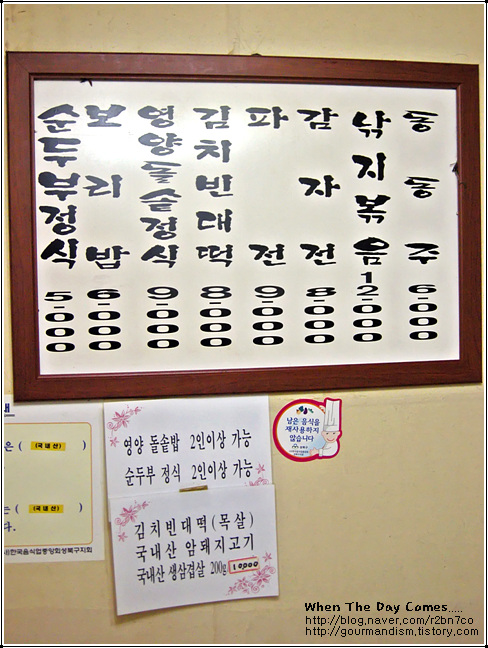 순두부정식 5-000
보리밥 6-000
영양돌솥정식 9-000
김치빈대떡 8-000
파전 9-000
감자전 8-000
낚지볶음 12-000
동동주 6-000
은 ( 국내산 )
는 = ( 국내산 )
다.
한국음식업중앙회성북구지회
영양 돌솥밥 2인이상 가능
순두부 정식 2인이상 가능
김치빈대떡(목살)
국내산 암돼지고기
국내산 생삼겹살 200g 10000
남은 음식을
재사용하지
않습니다
When The Day Comes.....
http://blog.naver.com/r2bn7co
http://gourmandism.tistory.com